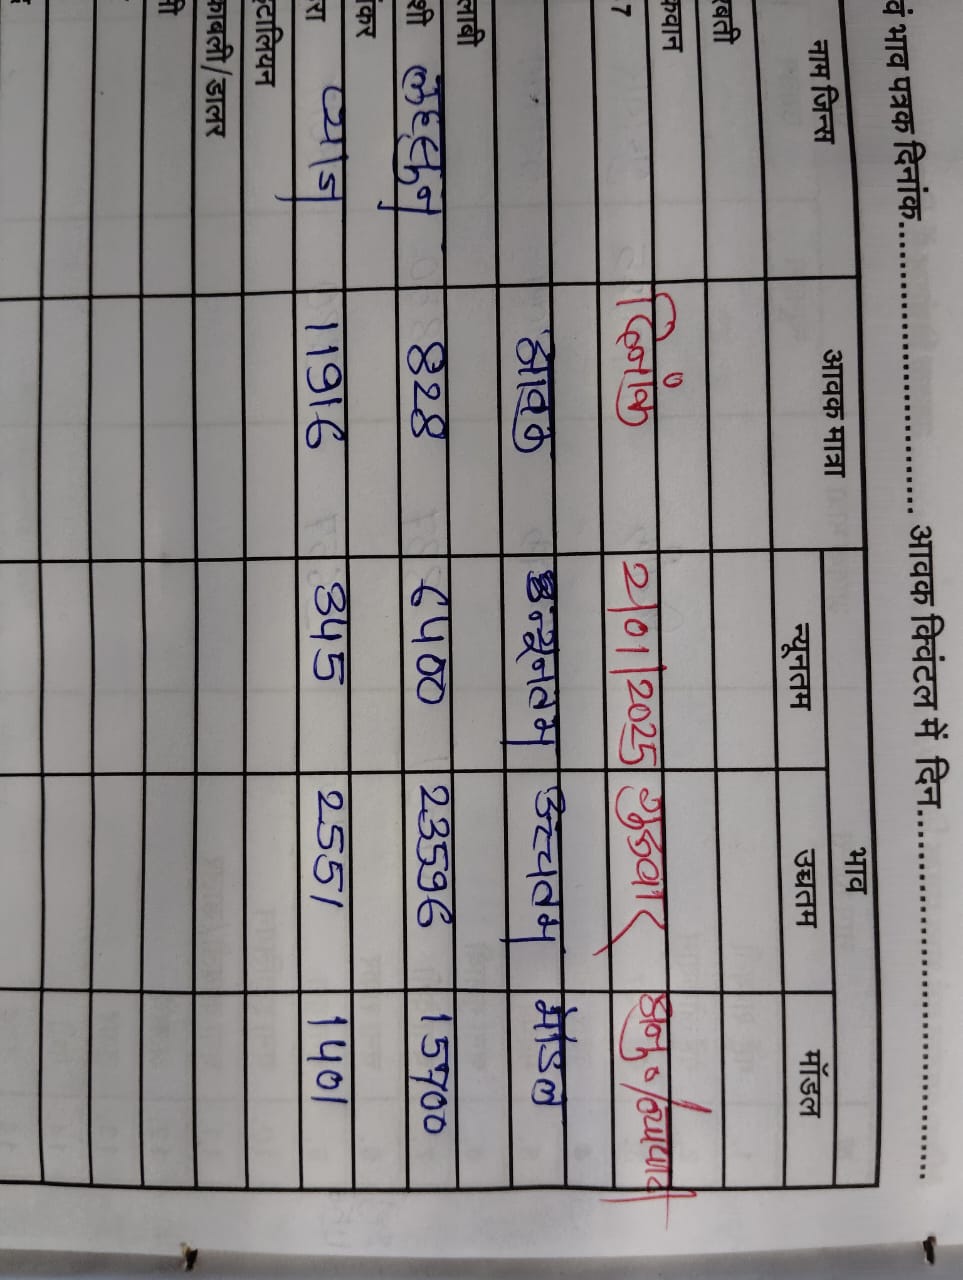 वं भाव पत्रक दिनांक........................ आवक क्विंटल में दिन........................
नाम जिन्स आवक मात्रा भाव
न्यूनतम उच्चतम मॉडल
दिनांक 2/01/2025 गुरुवार
आवक न्यूनतम उच्चतम मॉडल
लहसुन 828 6400 23596 15700
प्याज 11916 345 2551 1401
इटालियन
काबली/डालर